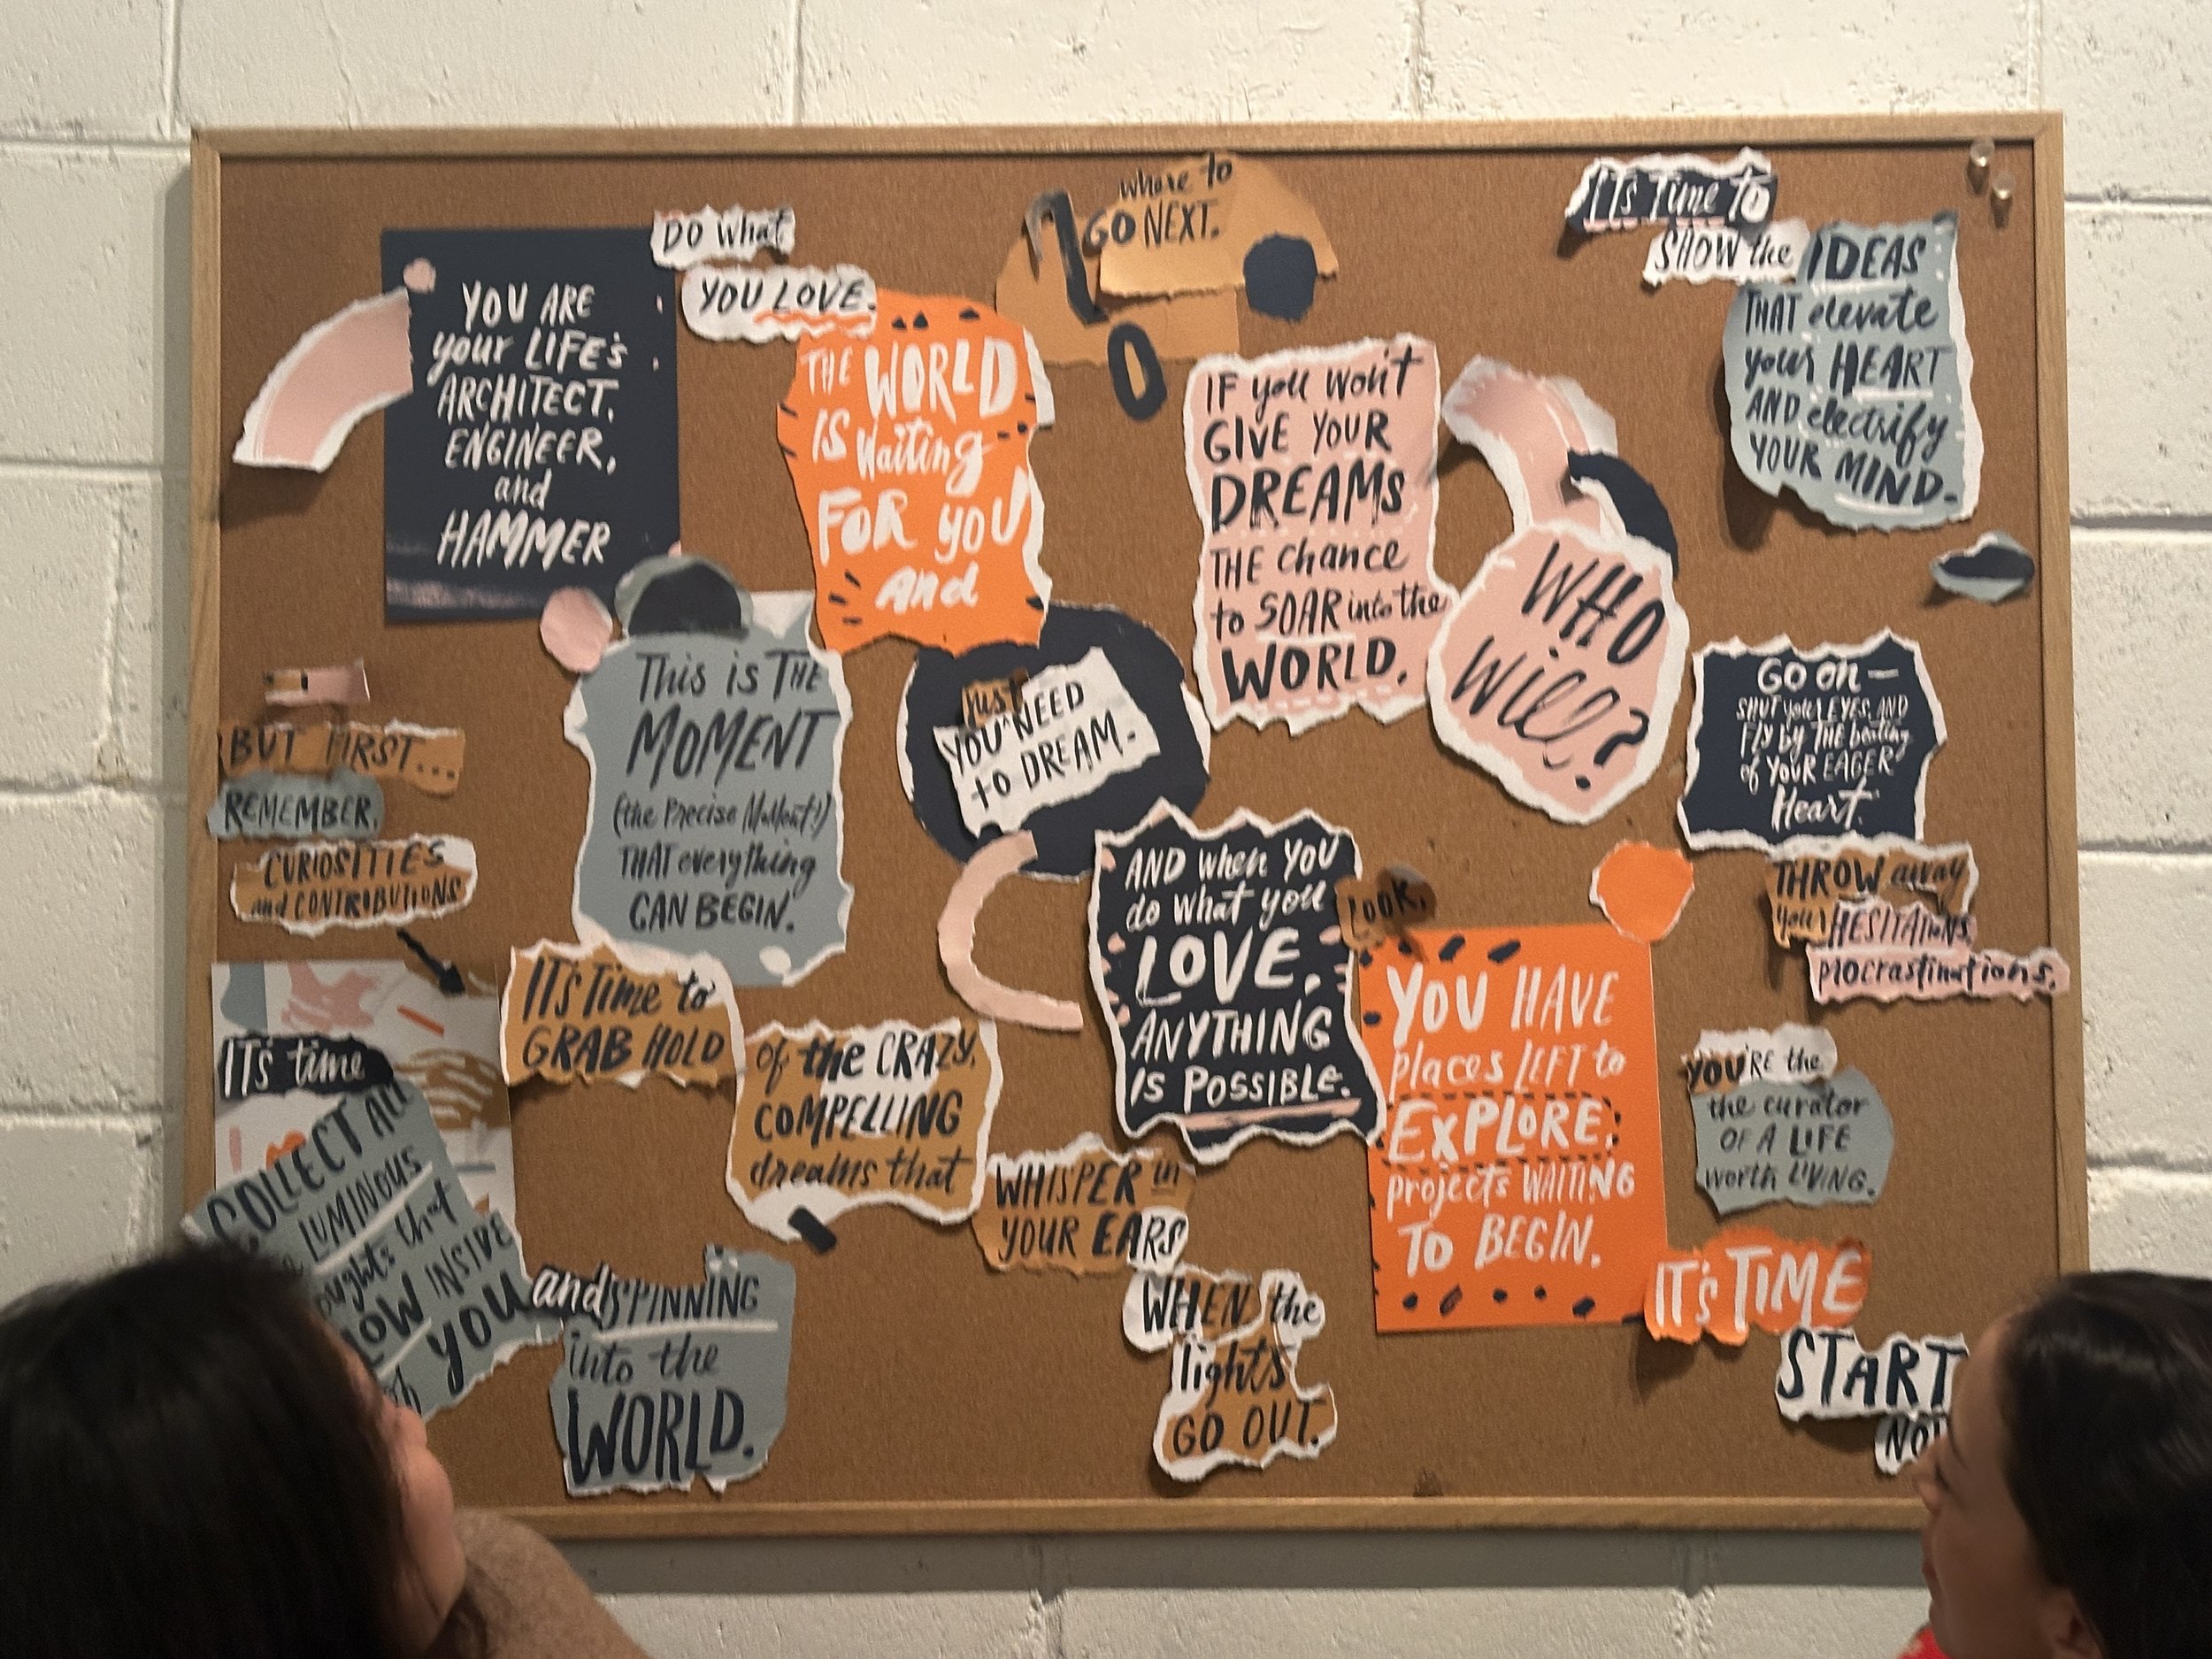 YOU ARE
your LIFE'S
ARCHITECT,
ENGINEER,
and
HAMMER
DO What
YOU LOVE.
THE WORLD
IS Waiting
FOR YOU
And
where to
GO NEXT.
IF you won't
GIVE YOUR
DREAMS
THE chance
to SOAR into the
WORLD,
WHO
Will?
IT's Time to
SHOW the IDEAS
THAT elevate
your HEART
AND electrify
YOUR MIND.
This is THE
MOMENT
(the Precise Moment!)
THAT everything
CAN BEGIN.
just
YOU NEED
to DREAM.
GO ON —
SHUT your EYES AND
FLY BY THE beating
of YOUR EAGER
Heart.
BUT FIRST...
REMEMBER.
CURIOSITIES
and CONTRIBUTIONS
THROW away
your HESITATIONS,
procrastinations.
AND when YOU
do what you
LOVE,
ANYTHING
IS POSSIBLE.
LOOK,
YOU HAVE
places LEFT to
EXPLORE,
projects WAITING
TO BEGIN.
YOU'RE the
the curator
OF A LIFE
worth LIVING.
IT'S TIME
START
IT's time
COLLECT ALL
LUMINOUS
that
INSIDE
of YOU
IT'S Time to
GRAB HOLD
of the CRAZY,
COMPELLING
dreams that
WHISPER in
YOUR EARS
WHEN the
lights
GO OUT.
and SPINNING
into the
WORLD.